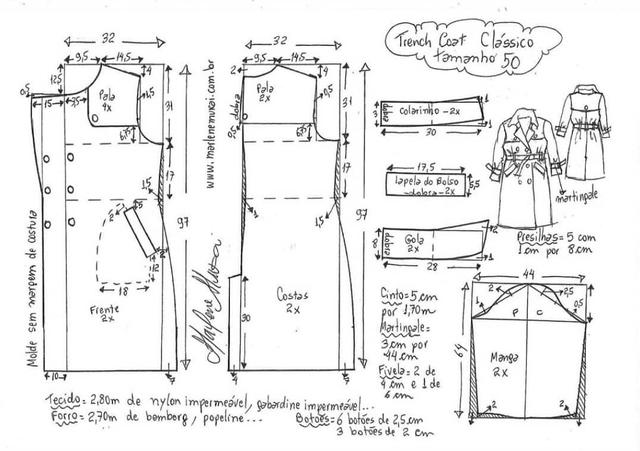 Trench Coat Clássico
tamanho 50
32
9,5
14,5
4
12,5
0,5
15
3,5
Pala
4x
1,5
31
6,5
17
1,5
97
2
1,5
2
12
18
Frente
2x
10
7
Molde sem margem de costura
www.marlenemukai.com.br
Marlene Mukai
32
9,5
14,5
2
4
Pala
2x
0,5
31
dobra
6,5
17
3
1,5
97
Costas
2x
30
4
7
3
dobra
Colarinho - 2x
1
1
30
17,5
Lapela do Bolso
dobra - 2x
5,5
8
dobra
Gola
2x
2
1
28
martingale
Presilhas = 5 com
1 cm por 8 cm
Cinto = 5 cm
por 1,70m
Martingale =
3 cm por
44 cm
Fivela = 2 de
4 cm e 1 de
6 cm
44
2
2,5
1
0,5
P
C
64
Manga
2x
2
2
Tecido = 2,80m de nylon impermeável, gabardine impermeável...
Forro = 2,70m de bemberg, popeline...
Botões = 6 botões de 2,5 cm
3 botões de 2 cm